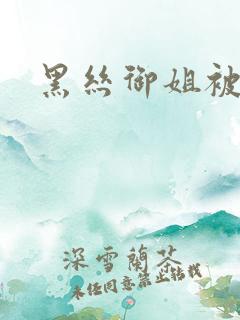 黑丝御姐被
深雪蘭茶
未经同意禁止转载